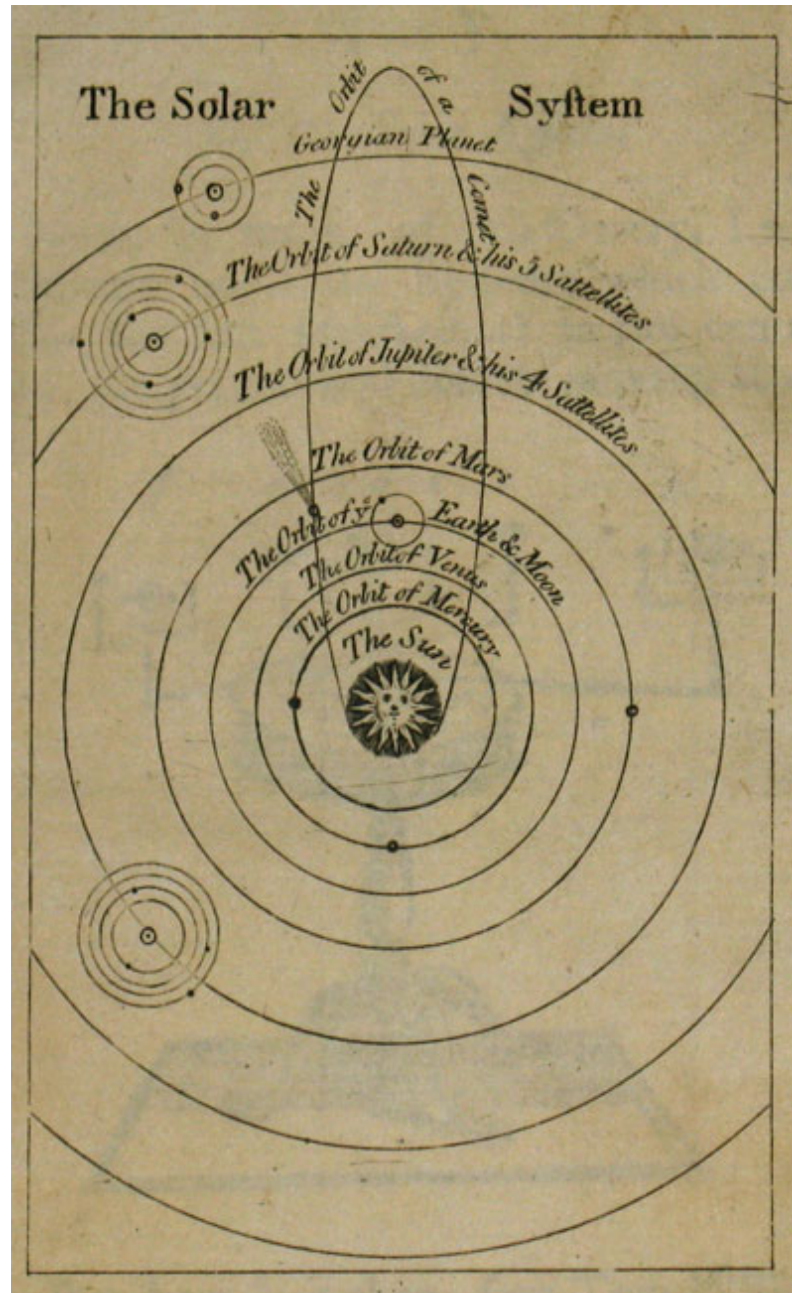 The Solar Syſtem
The Orbit of a Comet
Georgian Planet
The Orbit of Saturn & his 5 Sattellites
The Orbit of Jupiter & his 4 Sattellites
The Orbit of Mars
The Orbit of yᵉ Earth & Moon
The Orbit of Venus
The Orbit of Mercury
The Sun